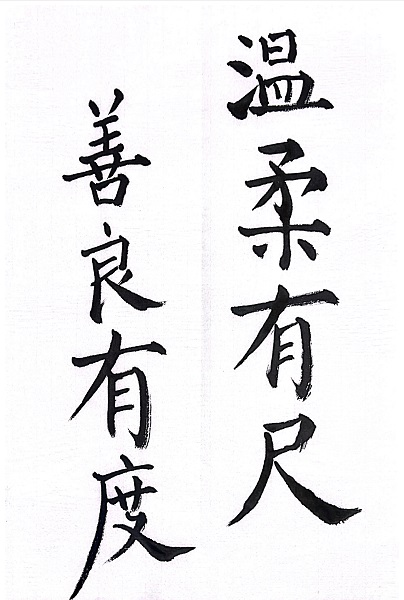 温柔有尺
善良有度